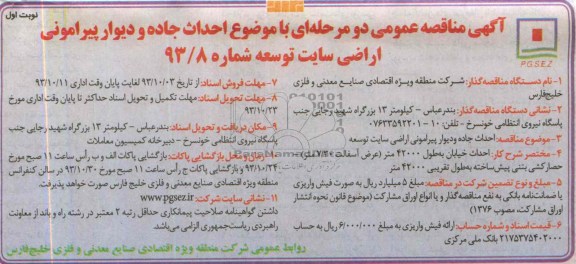 نوبت اول
آگهی مناقصه عمومی دو مرحله‌ای با موضوع احداث جاده و دیوار پیرامونی
اراضی سایت توسعه شماره ۹۳/۸
PGSEZ
۱- نام دستگاه مناقصه‌گذار: شرکت منطقه ویژه اقتصادی صنایع معدنی و فلزی
خلیج‌فارس
۲- نشانی دستگاه مناقصه‌گذار: بندرعباس – کیلومتر ۱۳ بزرگراه شهید رجایی جنب
پاسگاه نیروی انتظامی خونسرخ – تلفن: ۱۰ – ۰۷۶۳۳۵۹۲۲۰۱
۳- موضوع مناقصه: احداث جاده ودیوار پیرامونی اراضی سایت توسعه
۴- مختصر شرح کار: احداث خیابان به‌طول ۴۲۰۰۰ متر (عرض آسفالت ۷/۲ متر)
حصارکشی بتنی پیش‌ساخته به‌طول تقریبی ۴۲۰۰۰ متر
۵- مبلغ و نوع تضمین شرکت در مناقصه: مبلغ ۵ میلیارد ریال به صورت فیش واریزی
یا ضمانتنامه بانکی به نفع مناقصه‌گذار و یا انواع اوراق مشارکت (موضوع قانون نحوه انتشار
اوراق مشارکت، مصوب ۱۳۷۶)
۶- قیمت اسناد و شماره حساب: ارائه فیش واریزی به مبلغ ۶/۰۰۰/۰۰۰ ریال به حساب
۲۱۷۵۳۷۵۴۰۲۰۰۰ بانک ملی مرکزی
۷- مهلت فروش اسناد: از تاریخ ۹۳/۱۰/۰۳ لغایت پایان وقت اداری ۹۳/۱۰/۱۱
۸- مهلت تحویل اسناد: مهلت تکمیل و تحویل اسناد حداکثر تا پایان وقت اداری مورخ
۹۳/۱۰/۲۳
۹- مکان دریافت و تحویل اسناد: بندرعباس – کیلومتر ۱۳ بزرگراه شهید رجایی جنب
پاسگاه نیروی انتظامی خونسرخ – دبیرخانه کمیسیون معاملات
۱۰- زمان و محل بازگشایی پاکات: بازگشایی پاکات الف و ب رأس ساعت ۱۱ صبح مورخ
۹۳/۱۰/۲۴ و بازگشایی پاکات ج رأس ساعت ۱۱ صبح مورخ ۹۳/۱۰/۳۰ در سالن کنفرانس
منطقه ویژه اقتصادی صنایع معدنی و فلزی خلیج فارس صورت خواهد پذیرفت.
۱۱- نشانی سایت شرکت: www.pgsez.ir
داشتن گواهینامه صلاحیت پیمانکاری حداقل رتبه ۲ معتبر در رشته راه و باند از معاونت
راهبردی ریاست‌جمهوری الزامی می‌باشد.
روابط عمومی شرکت منطقه ویژه اقتصادی صنایع معدنی و فلزی خلیج‌فارس